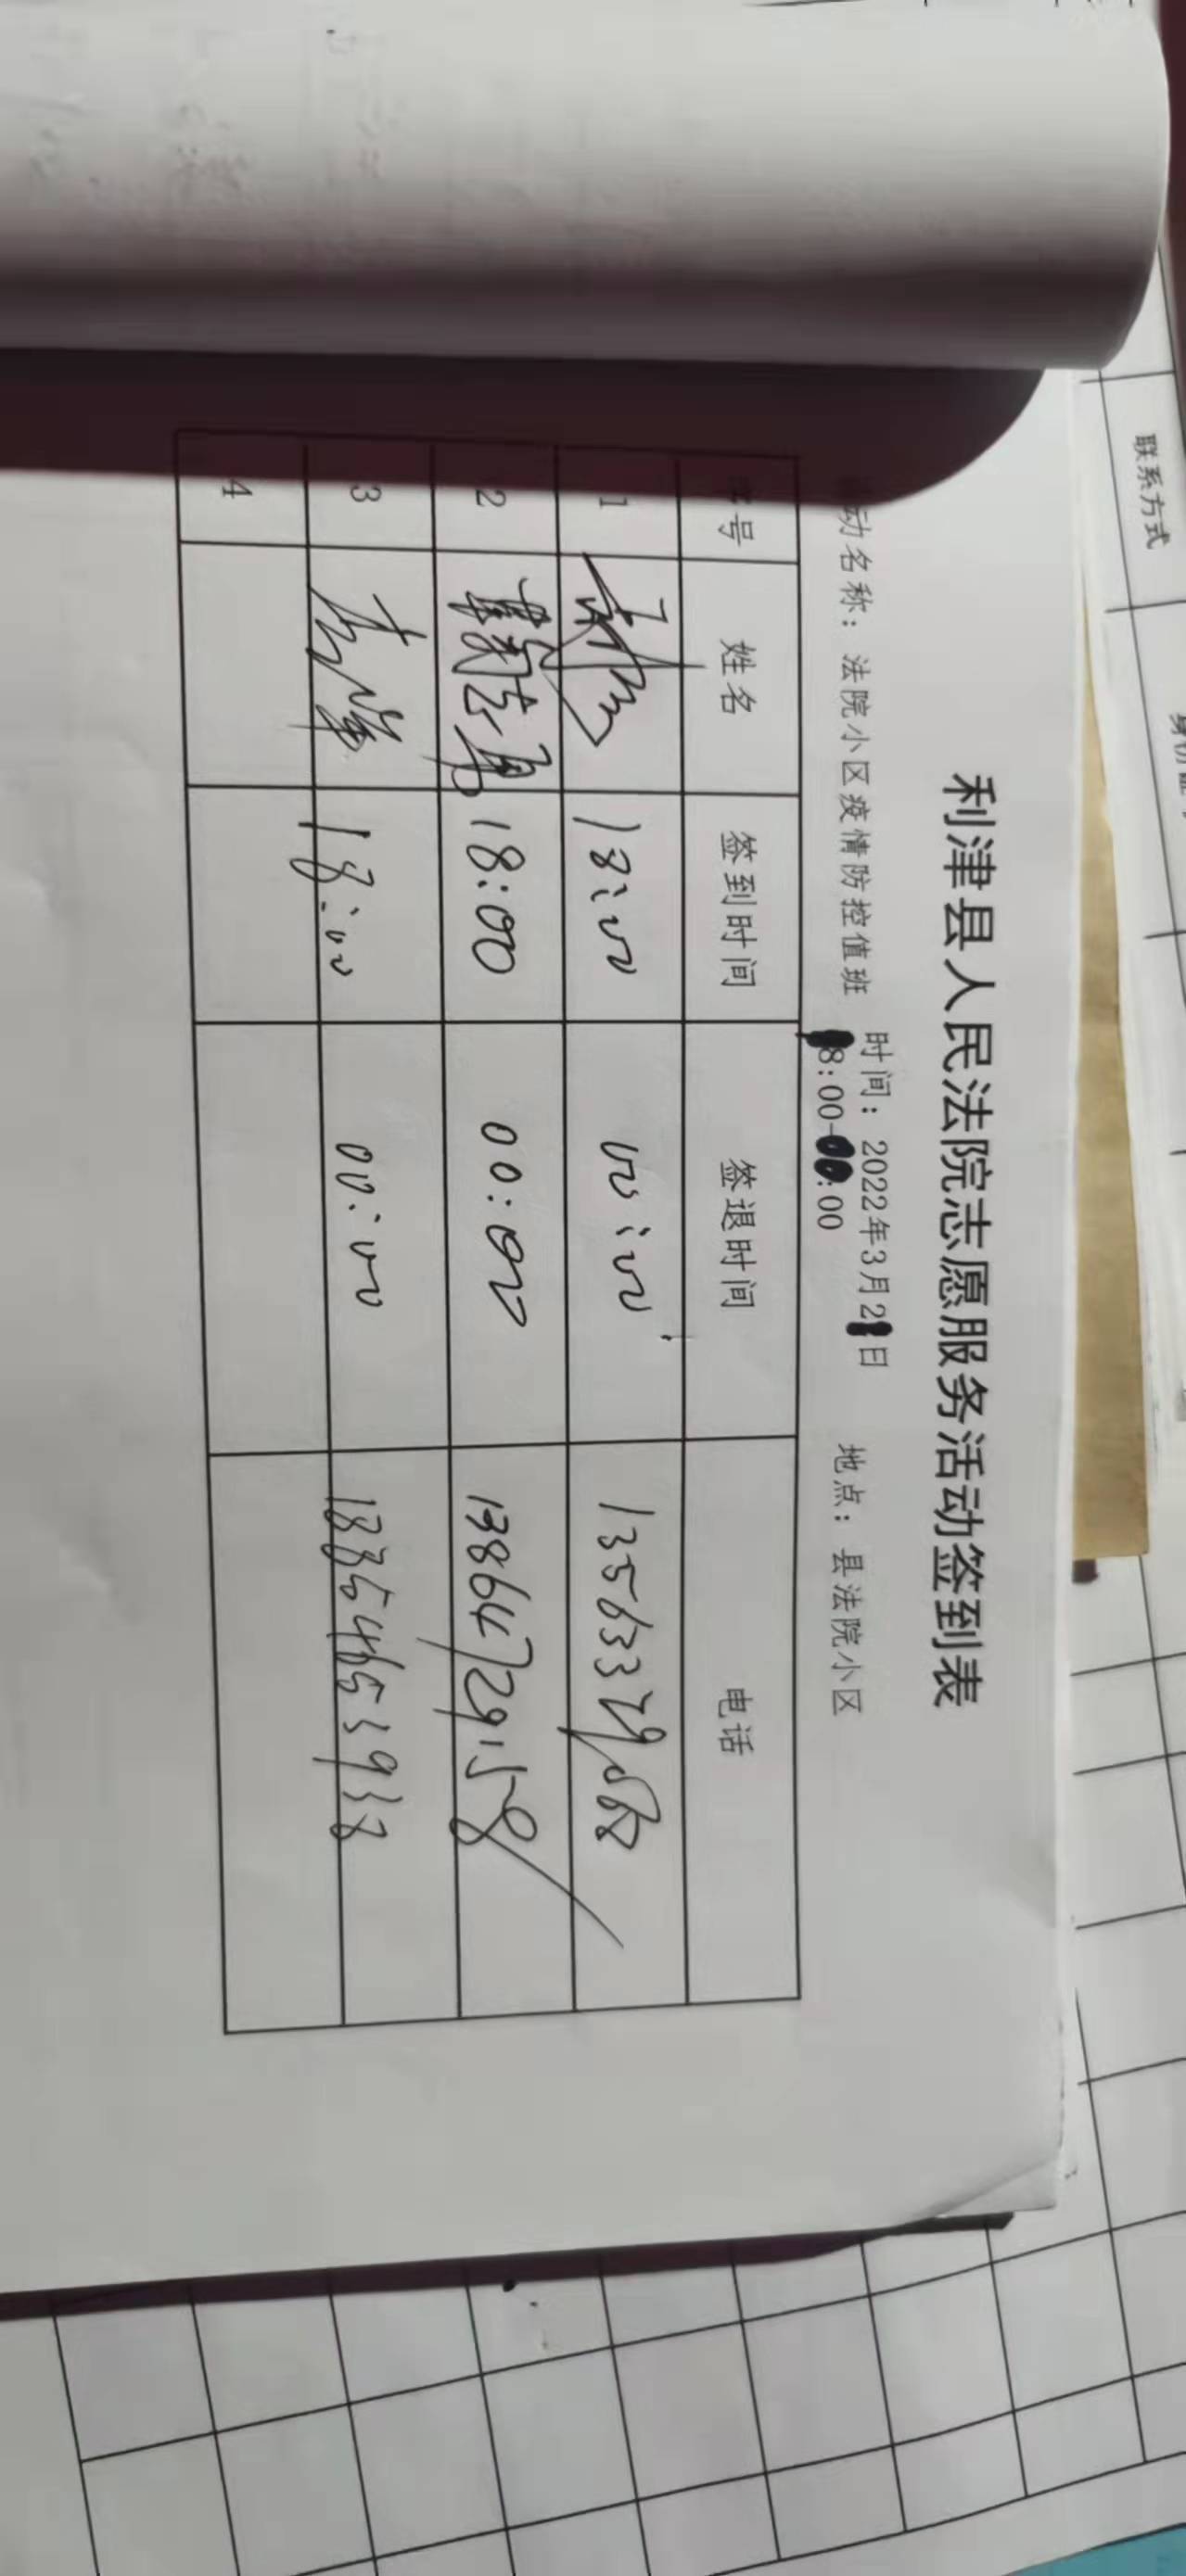 利津县人民法院志愿服务活动签到表
动名称：法院小区疫情防控值班 时间：2022年3月21日 地点：县法院小区
18:00-00:00
号 姓名 签到时间 签退时间 电话
1 18:00 00:00
2 18:00 00:00 13864729158
3 18:00 00:00 13854653938
4
联系方式